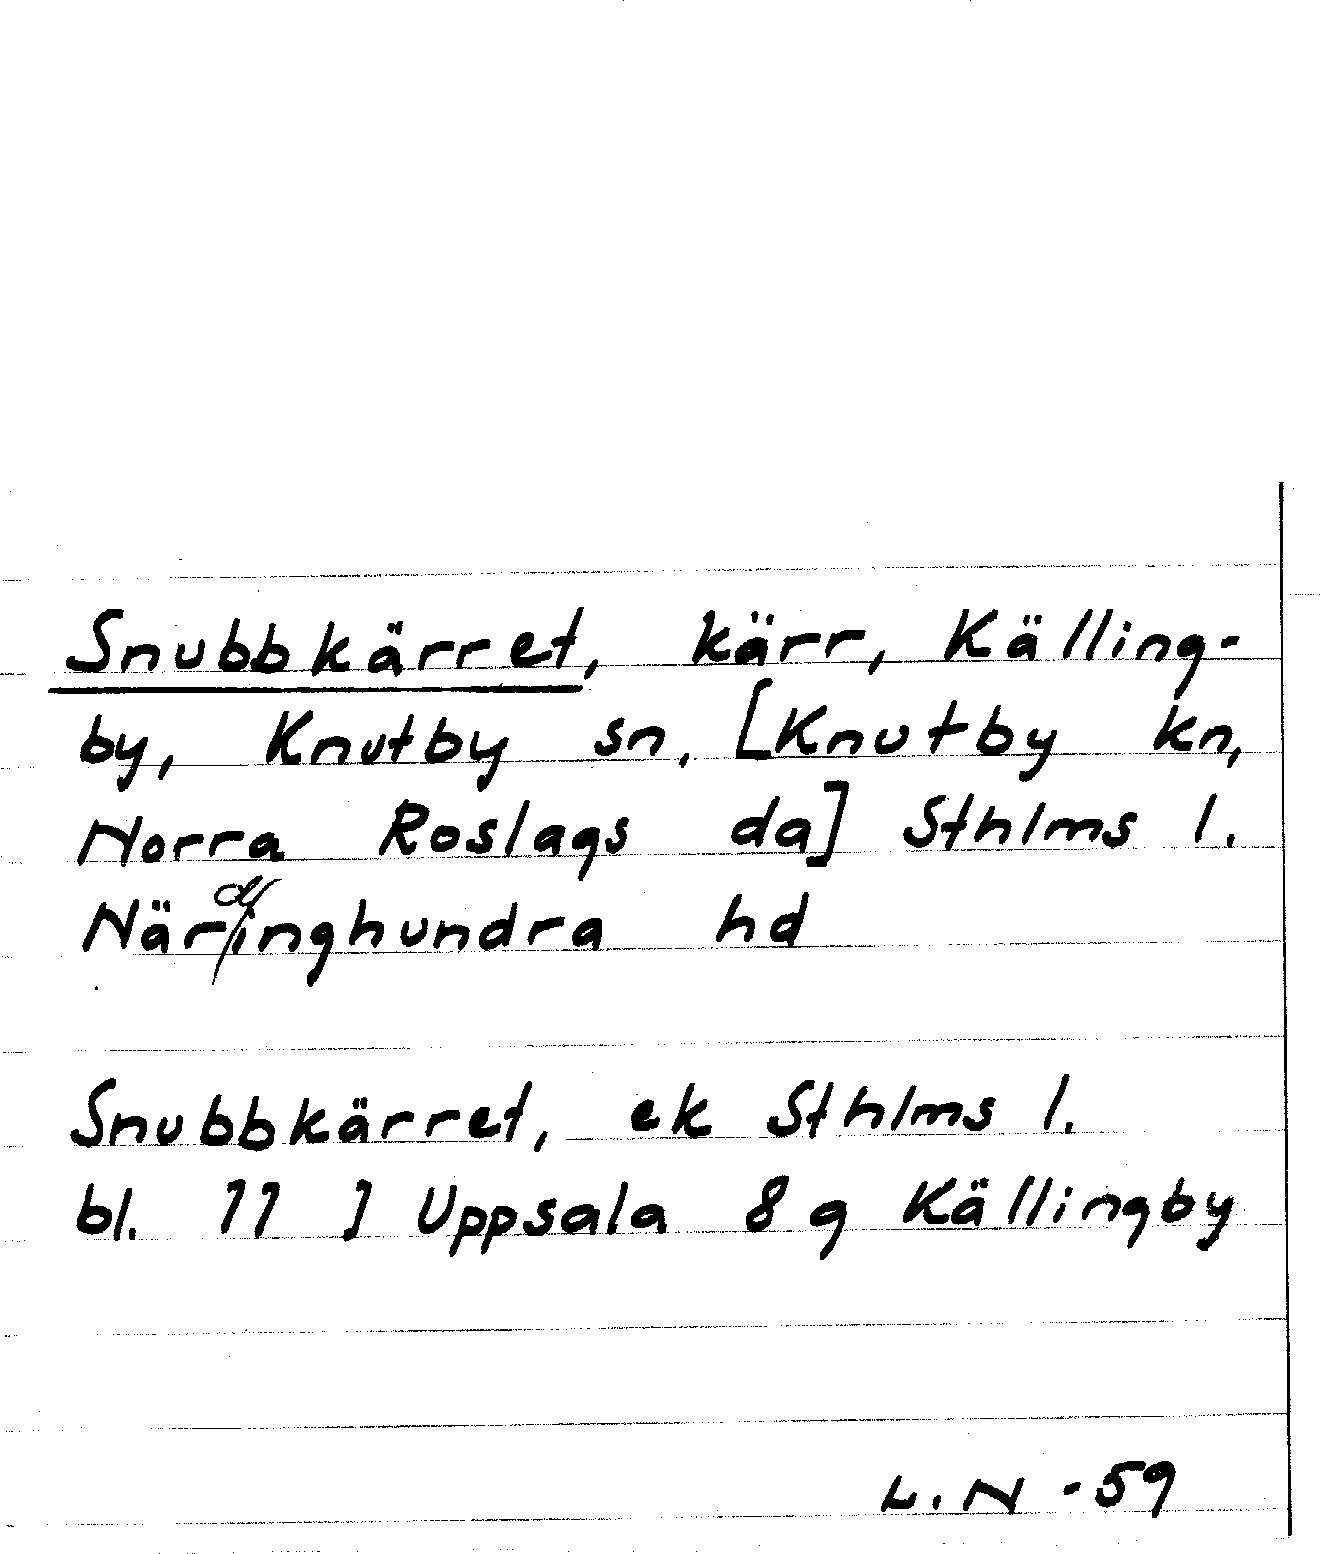 Snubbkärret, kärr, Källing-
by, Knutby sn, [Knutby kn,
Norra Roslags da] Sthlms l.
Närdinghundra hd
Snubbkärret, ek Sthlms l.
bl. 77 ] Uppsala 8 g Källingby
L.N -59